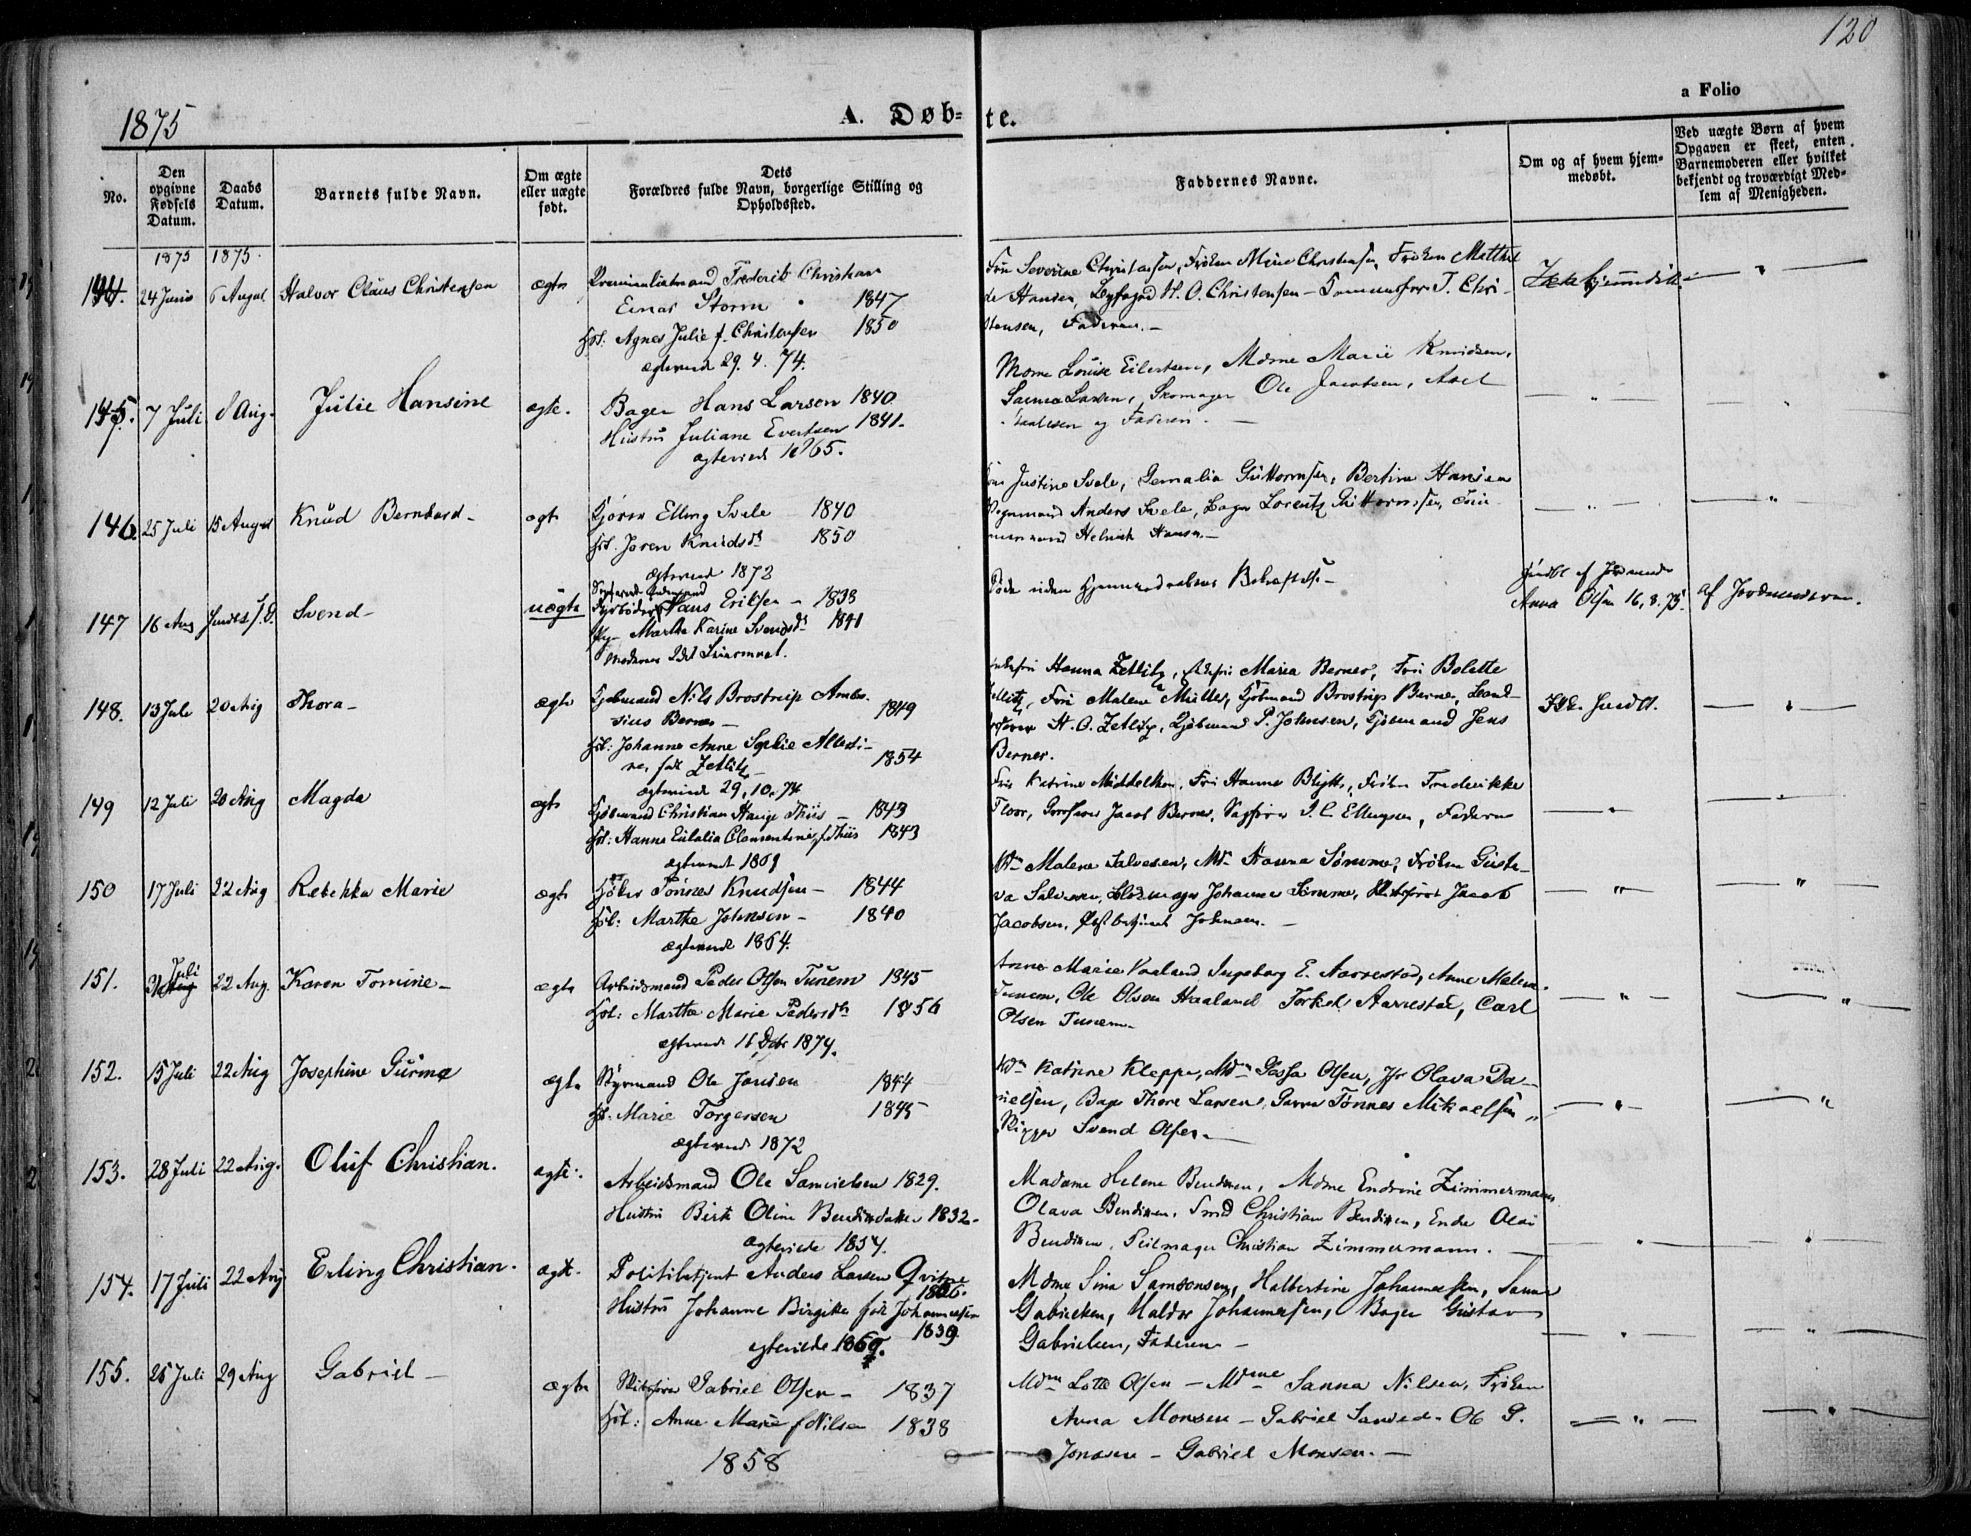 120
a Folio
1875
A. Døb=
te.
No.
Den opgivne Fødsels Datum.
Daabs Datum.
Barnets fulde Navn.
Om ægte eller uægte født.
Dets
Forældres fulde Navn, borgerlige Stilling og Opholdssted.
Faddernes Navne.
Om og af hvem hjem=
medøbt.
Ved uægte Børn af hvem
Opgaven er skeet, enten
Barnemoderen eller hvilket
bekjendt og troværdigt Med=
lem af Menigheden.
1875 1875.
144. 24 Juni 6 August Halvor Claus Christensen ægte Frederik Christian
Einar Storm 1847
Hst: Agnes Julie f. Christensen 1850
ægteviede 29. 4. 74.
Fru Severine Christensen, Frøken Mine Christensen, Frøken Mathil
de Hansen, Byfoged H. O. Christensen - T. Chri-
stensen, Faderen.-
145. 7 Juli 8 Aug. Julie Hansine ægte. Bager Hans Larsen 1840
Hustru Juliane Evertsen 1841.
ægteviede 1865.
Mdme Louise Eilertsen, Mdme Marie Knudsen,
Sanna Larsen, Skomager Ole Jacobsen, Axel
og Faderen.
146. 25 Juli 15 August Knud Bernhard - ægte Elling Svele 1840
Hst. Joren Knudsdtr 1850
ægteviede 1872
Justine Svele, Guttormsen, Bertine Hansen
Anders Svele, Bager Lorentz Guttormsen,
Hansen.-
147 16 Aug Svend - uægte Fyrbøder Hans Eriksen - 1838
Pige Marthe Karine Svendsdtr 1841
Moderens 2det Leiermaal.
Døde uden
Jordmoder
Anna Olsen 16, 8. 75.
af Jordemoderen.
148. 13 Juli 20 Aug Thora - ægte Kjøbmand Nils Brostrup Ambro-
sius Berner - 1849
Hst: Johanne Anne Sophie Alberti-
ne, født Zetlitz - 1854
ægteviede 29. 10. 74
Hanna Zetlitz, Maria Berner, Fru Bolette
Zetlitz, Fru Malene Müller, Kjøbmand Brostrup Berner,
H. O. Zetlitz, Kjøbmand P. Johnsen, Kjøbmand Jens
Berner.
149 12 Juli 20 Aug Magda ægte Kjøbmand Christian Hauge Thiis - 1843
Hst: Hanne Eulalia Clementine f. Thiis 1843
ægteviede 1869
Fru Katrine Middelthon, Fru Hanne Blytt, Frøken Frederikke
Floor, Jacob Berner, Sagfører I. C. Ellingsen, Faderen
150 17 Juli 22 Aug Rebekka Marie ægte Tønnes Knudsen - 1844
Hst: Marthe Johnsen - 1840
ægteviede 1864.
Mdm Malene Salvesen, Mdm Hanna Sømme, Frøken Gusta-
va Salvesen, Johannes Sømme, Skibsfører Jacob
Jacobsen, Johnsen. -
151. 31 Juli 22 Aug. Karen Tomine - ægte Arbeidsmand Peder Olsen Tunem 1845
Hst: Marthe Marie Pedersdtr 1856
ægteviede 16 Dcbr 1874.
Anne Marie Haaland Ingeborg E. Aarrestad, Anne Malene
Tunem, Ole Olsen Haaland Torkel Aarrestad, Carl
Olsen Tunem -
152. 15 Juli 22 Aug Josephine Gurine ægte Styrmand Ole Jonsen 1844
Hst: Marie Torgersen 1845
ægteviede 1872
Mdm Katrine Kleppe, Mdm Olsen, Jfr Olava Da-
nielsen, Bager Thore Larsen, Garver Tønnes Mikaelsen
Skipper Svend Olsen. -
153. 28 Juli 22 Aug. Oluf Christian. ægte. Arbeidsmand Ole Samuelsen 1829.
Hustru Berte Oline Bendiksdatter 1832.
ægteviede 1854.
Madame Helene Bendiksen, Mdme Endrine Zimmermann
Olava Bendiksen, Smed Christian Bendiksen, Olai
Bendiksen, Seilmager Christian Zimmermann.
154. 17 Juli 22 Aug Erling Christian. ægte. Politibetjent Anders Larsen Qvitne
1836.
Hustru Johanne Birgitte født Johannessen
1839
ægteviede 1869.
Mdme Sina Samsonsen, Halbertine Johannessen, Sanne
Gabrielsen, Haldor Johannessen, Bager Gustav
Gabrielsen, Faderen -
155. 25 Juli 29 Aug Gabriel - ægte Skibsfører Gabriel Olsen - 1837
Hst: Anne Marie f. Nilsen 1838
1858
Mdm Lotte Olsen - Mdme Sanna Nilsen, Frøken
Anna Monsen - Gabriel - Ole G.
Jonasen - Gabriel Monsen. -